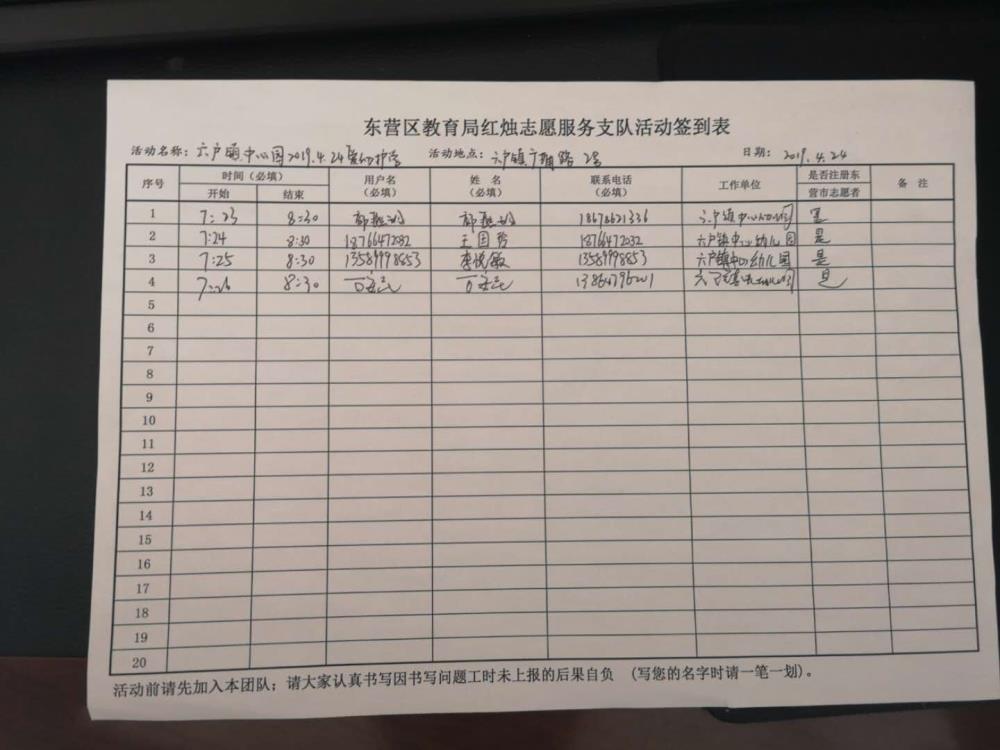 东营区教育局红烛志愿服务支队活动签到表
活动名称：六户镇中心园2019.4.24 护学 活动地点：六户镇广 路 2号 日期：2019.4.24
序号 时间（必填） 用户名（必填） 姓名（必填） 联系电话（必填） 工作单位 是否注册东营市志愿者 备注
开始 结束
1 7:23 8:30 18678621336 六户镇中心幼儿园 是
2 7:24 8:30 18766472032 王国 18766472032 六户镇中心幼儿园 是
3 7:25 8:30 13589998653 李悦敏 13589998653 六户镇中心幼儿园 是
4 7:26 8:30 六户镇中心幼儿园 是
5
6
7
8
9
10
11
12
13
14
15
16
17
18
19
20
活动前请先加入本团队；请大家认真书写因书写问题工时未上报的后果自负 （写您的名字时请一笔一划）。